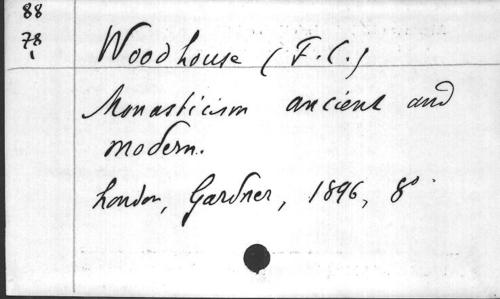 88
78
1
Woodhouse (F.C.)
Monasticism ancient and
modern.
London, Gardner, 1896, 8°.